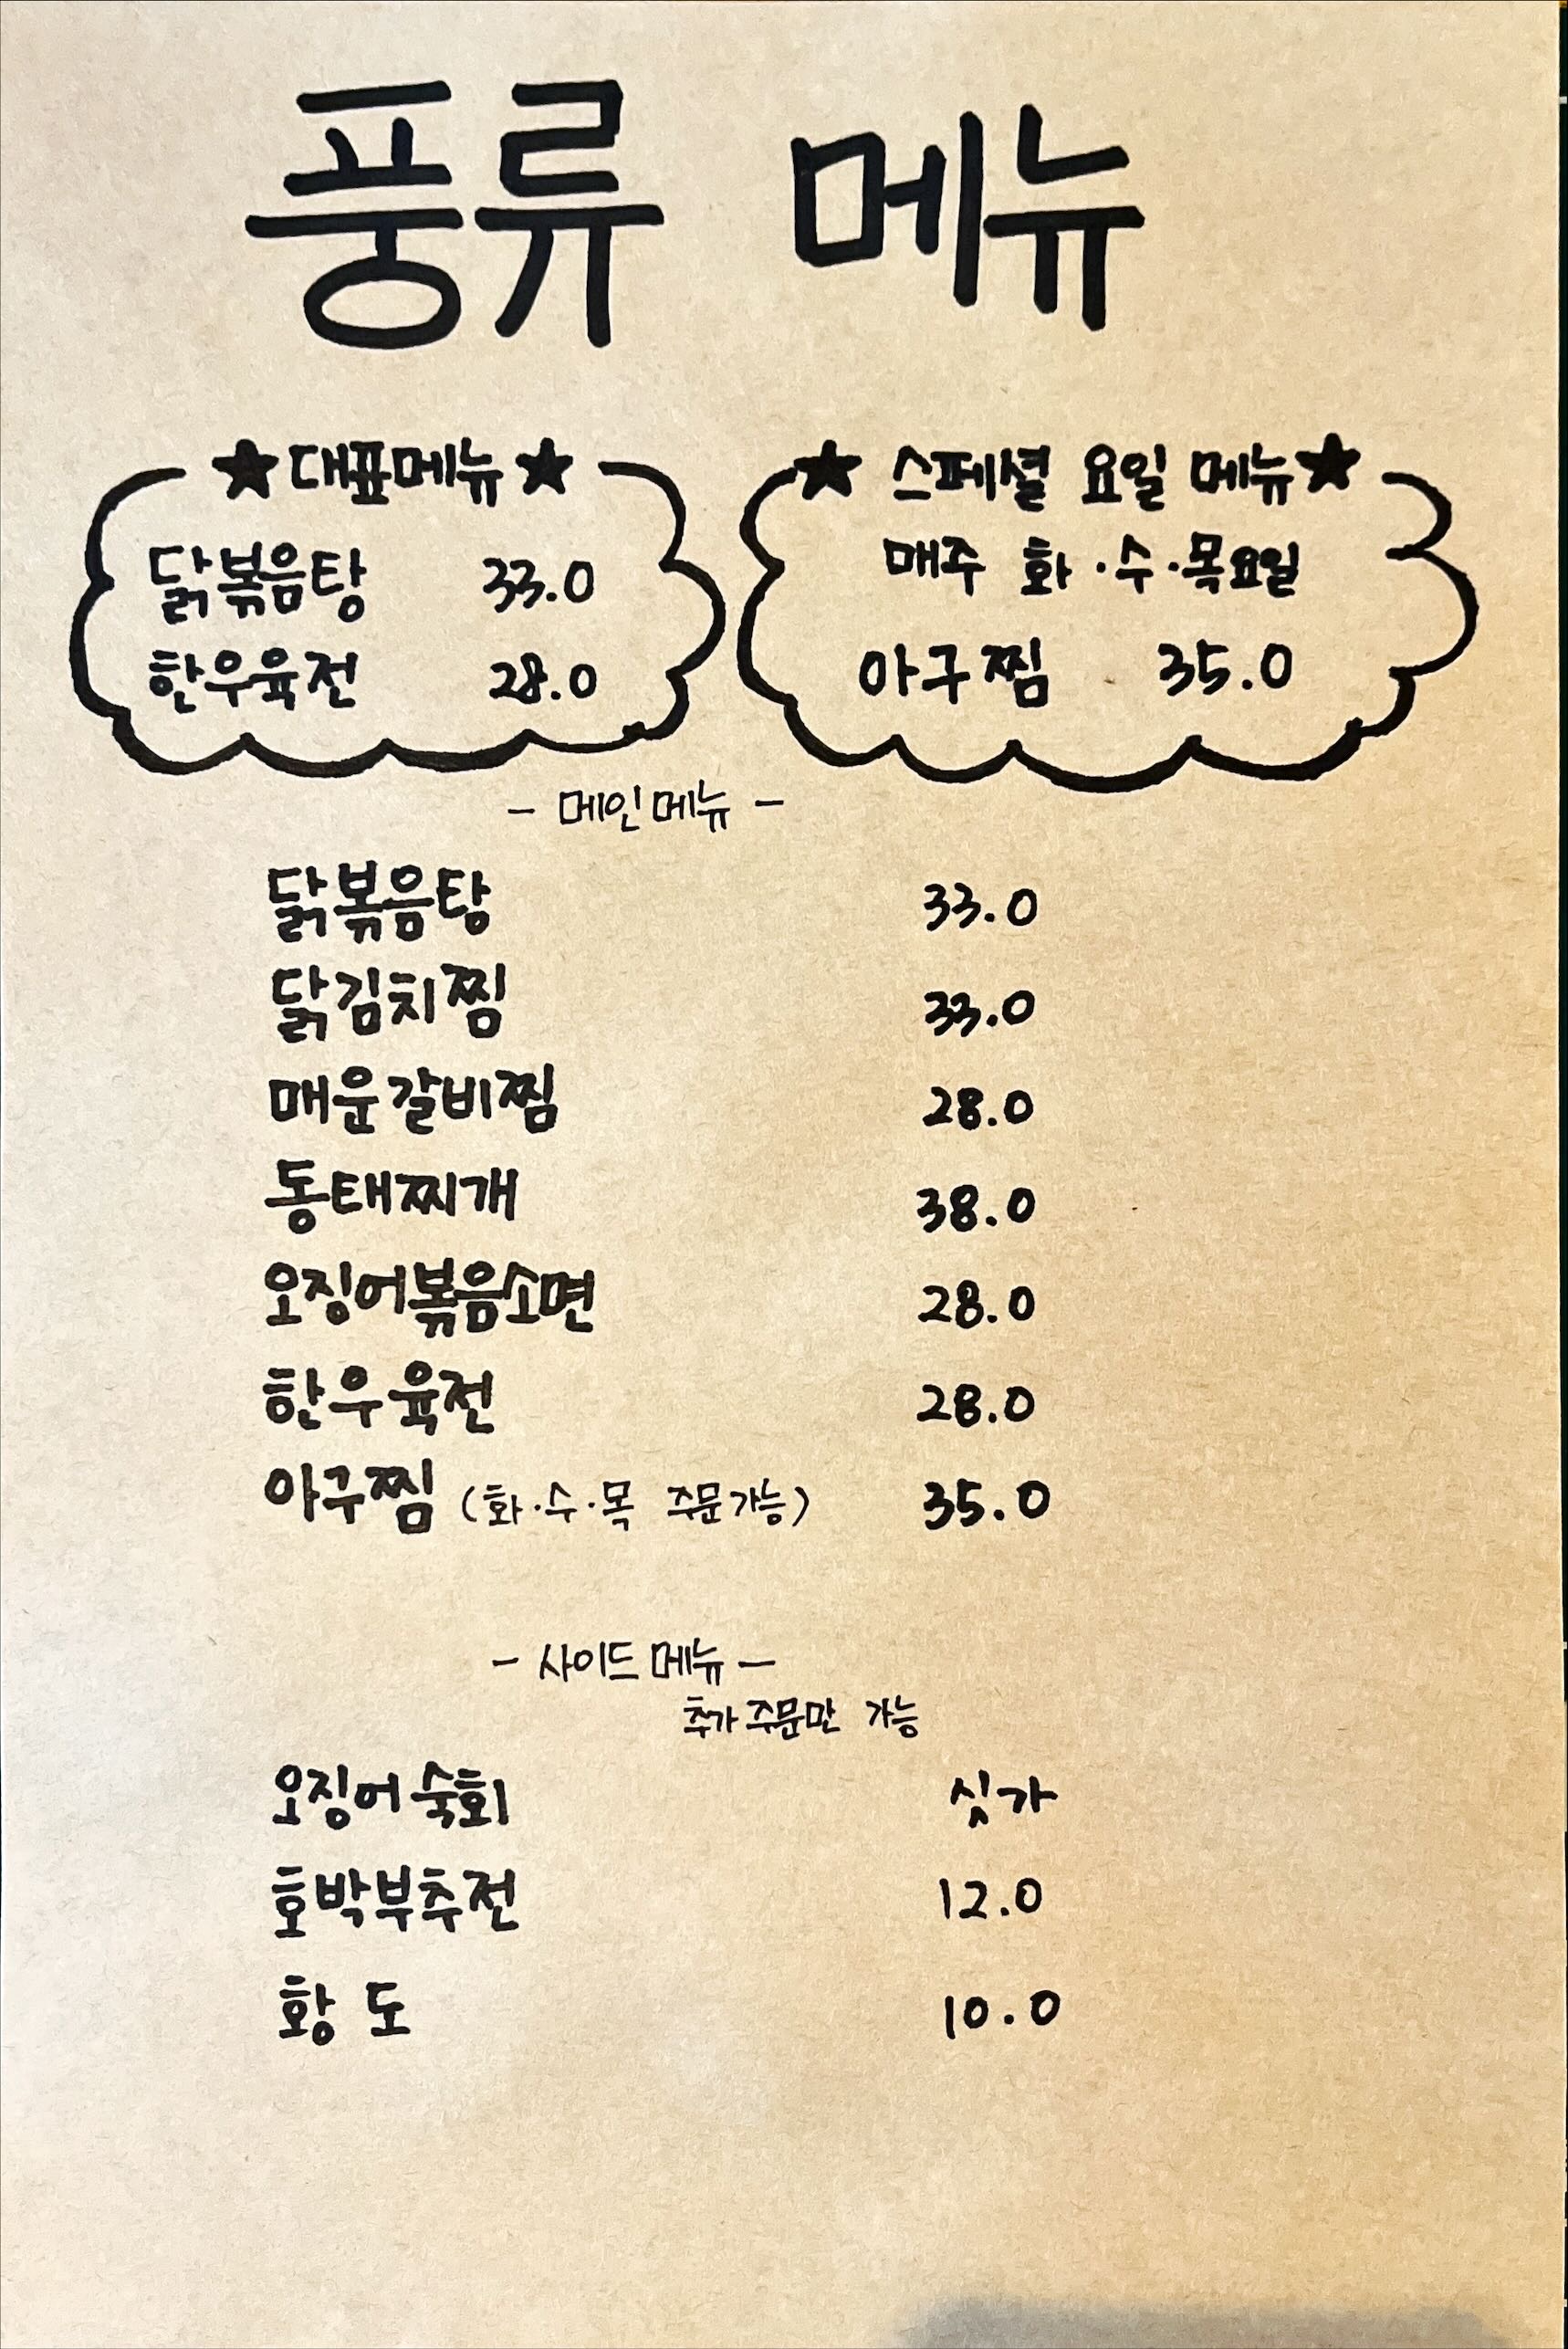 풍류 메뉴
★대표메뉴★
닭볶음탕 33.0
한우육전 28.0
★ 스페셜 요일 메뉴★
매주 화·수·목요일
아구찜 35.0
- 메인메뉴 -
닭볶음탕 33.0
닭김치찜 33.0
매운갈비찜 28.0
동태찌개 38.0
오징어볶음소면 28.0
한우육전 28.0
아구찜 (화·수·목 주문가능) 35.0
- 사이드메뉴 -
추가주문만 가능
오징어숙회 싯가
호박부추전 12.0
황도 10.0